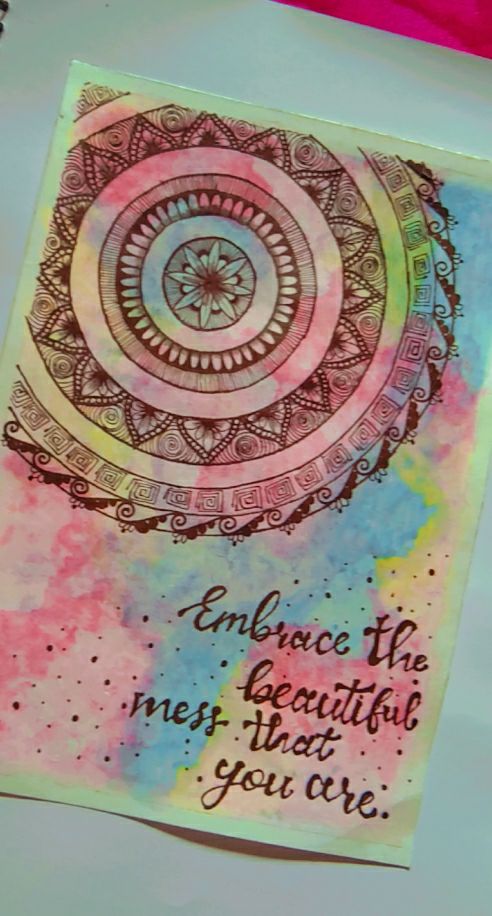 Embrace the
beautiful
mess that
you are.